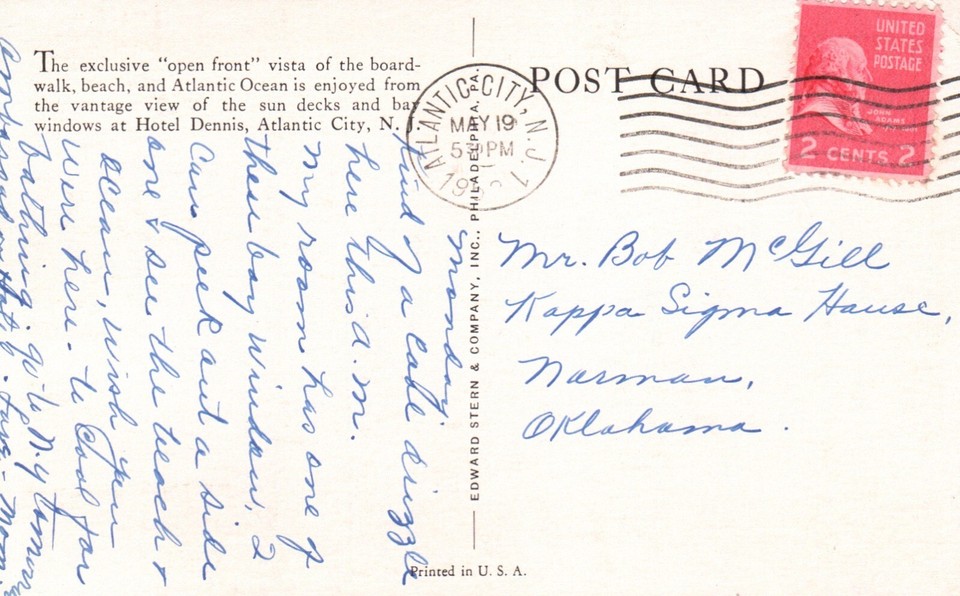 The exclusive "open front" vista of the board-
walk, beach, and Atlantic Ocean is enjoyed from
the vantage view of the sun decks and bay
windows at Hotel Dennis, Atlantic City, N. J.
POST CARD
ATLANTIC CITY, N.J. 1
MAY 19
5 30 PM
UNITED
STATES
POSTAGE
JOHN
ADAMS
2 CENTS 2
EDWARD STERN & COMPANY, INC., PHILADELPHIA, PA.
Mr. Bob McGill
Kappa Sigma House,
Norman,
Oklahoma.
Monday
Kind of a cold drizzle
here this a.m.
My room has one of
these bay windows, I
can peek out a side
one & see the beach &
ocean, wish you
were here. to cool for
bathing. go to N.Y tomorrow
Ambassador Hotel. Love - Mom.
Printed in U. S. A.